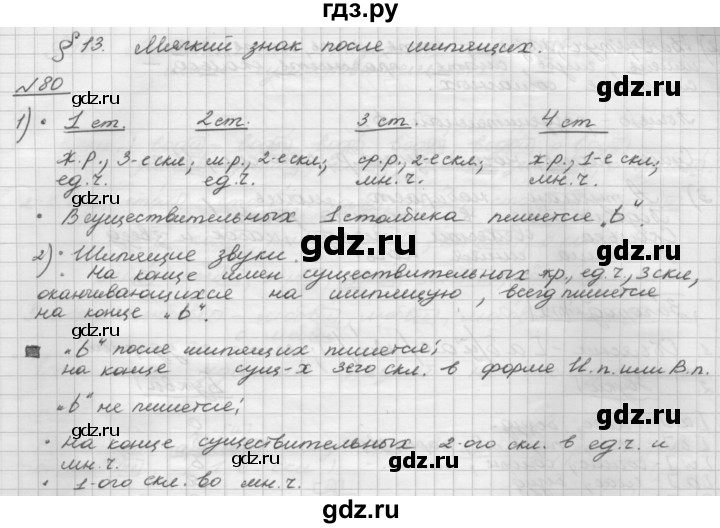 гдз.ру
§ 13. Мягкий знак после шипящих.
№80
1) • 1 ст. 2 ст. 3 ст. 4 ст
ж.р., 3-е скл; м.р., 2-е скл; ср.р., 2-е скл; ж.р., 1-е скл;
ед.ч. ед.ч. мн.ч. мн.ч.
• В существительных 1 столбика пишется „ь".
2) • Шипящие звуки.
• На конце имен существительных ж.р., ед.ч, 3 скл,
оканчивающихся на шипящую, всегд пишется
на конце „ь".
„ь" после шипящих пишется;
на конце сущ-х 3его скл. в форме И.п. или В.п.
„ь" не пишется;
• На конце существительных 2-ого скл. в ед.ч. и
мн.ч.
• 1-ого скл. во мн.ч.
gdz.ru
gdz.ru
gdz.ru
gdz.ru
gdz.ru
gdz.ru
gdz.ru
gdz.ru
gdz.ru
gdz.ru
gdz.ru
gdz.ru
gdz.ru